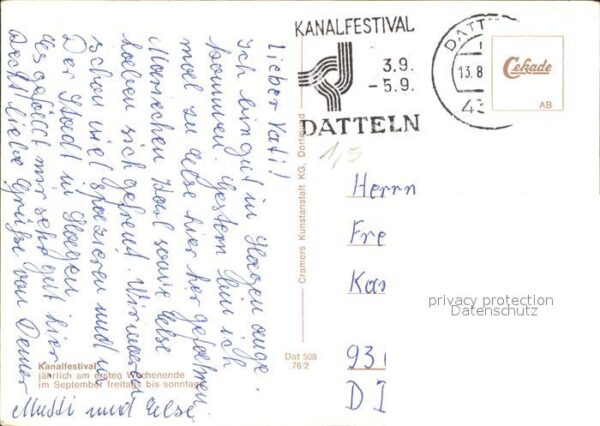 KANALFESTIVAL
3.9.
-5.9.
DATTELN
DATT
13.8
43
Cekade
AB
1,5
Lieber Vati!
Ich bin gut in Hagen ange-
kommen. Gestern bin ich
mal zu Else hier her gefahren.
Karl sowie Else
haben sich gefreut. Wir waren
schon viel spazieren und in
Der Stadt in Hagen
es gefällt mir sehr gut hier.
liebe Grüße von Deiner
Mutti und Else
Cramers Kunstanstalt KG, Dortmund
Dat 508
76/2
Kanalfestival
jährlich am ersten Wochenende
im September freitags bis sonntags
Herrn
Fre
Kar
931
DI
privacy protection
Datenschutz